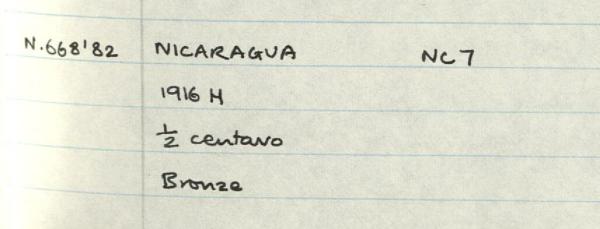 N.668'82 NICARAGUA NC7
1916 H
½ centavo
Bronze